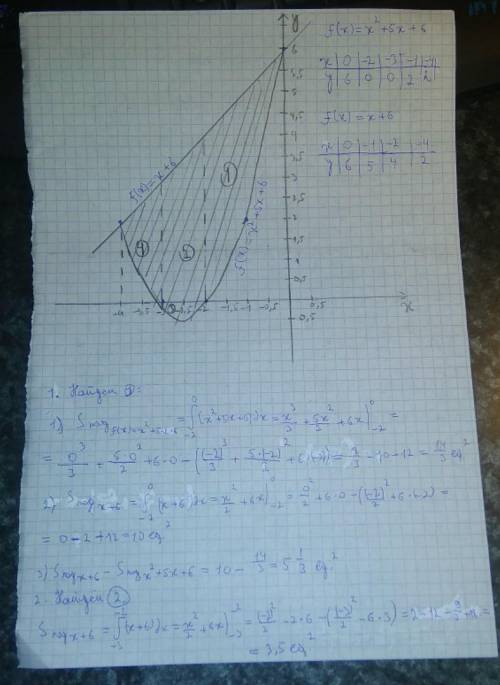 y
f(x)=x²+5x+6
x | 0 | -2 | -3 | -1 | -4
y | 6 | 0 | 0 | 2 | 2
f(x)=x+6
x | 0 | -1 | -2 | -4
y | 6 | 5 | 4 | 2
6
f(x)=x+6
f(x)=x²+5x+6
① ② ③ ④
-4 -3,5 -3 -2 -1,5 -1 -0,5 0,5 x
0,5
1. Найдем ①:
1) Sпод f(x)=x²+5x+6 = ∫₋₂⁰ (x²+5x+6)dx = x³/3 + 5x²/2 + 6x|₋₂⁰ =
= 0³/3 + 5·0²/2 + 6·0 - ((-2)³/3 + 5·(-2)²/2 + 6·(-2)) = 8/3 - 10 + 12 = 14/3 ед²
2) Sпод x+6 = ∫₋₂⁰ (x+6)dx = x²/2 + 6x|₋₂⁰ = 0²/2 + 6·0 - ((-2)²/2 + 6·(-2)) =
= 0-2+12=10 ед²
3) Sпод x+6 - Sпод x²+5x+6 = 10 - 14/3 = 5 1/3 ед²
2. Найдем ②
Sпод x+6 = ∫₋₃⁻² (x+6)dx = x²/2 + 6x|₋₃⁻² = (-2)²/2 - 2·6 - ((-3)²/2 - 6·3) = 2-12-9/2+18 =
= 3,5 ед²